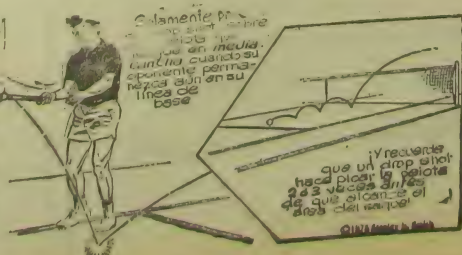 Solamente
sobre
en media
cancha cuando su
oponente perma-
nezca aún en su
línea de
base
¡Y recuerde
que un drop shot
hace picar la pelota
2 ó 3 veces antes
de que alcance el
área del saque!